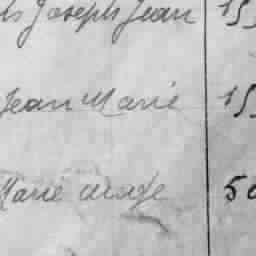 Joseph Jean 15
Jean Marie 15
Marie 50